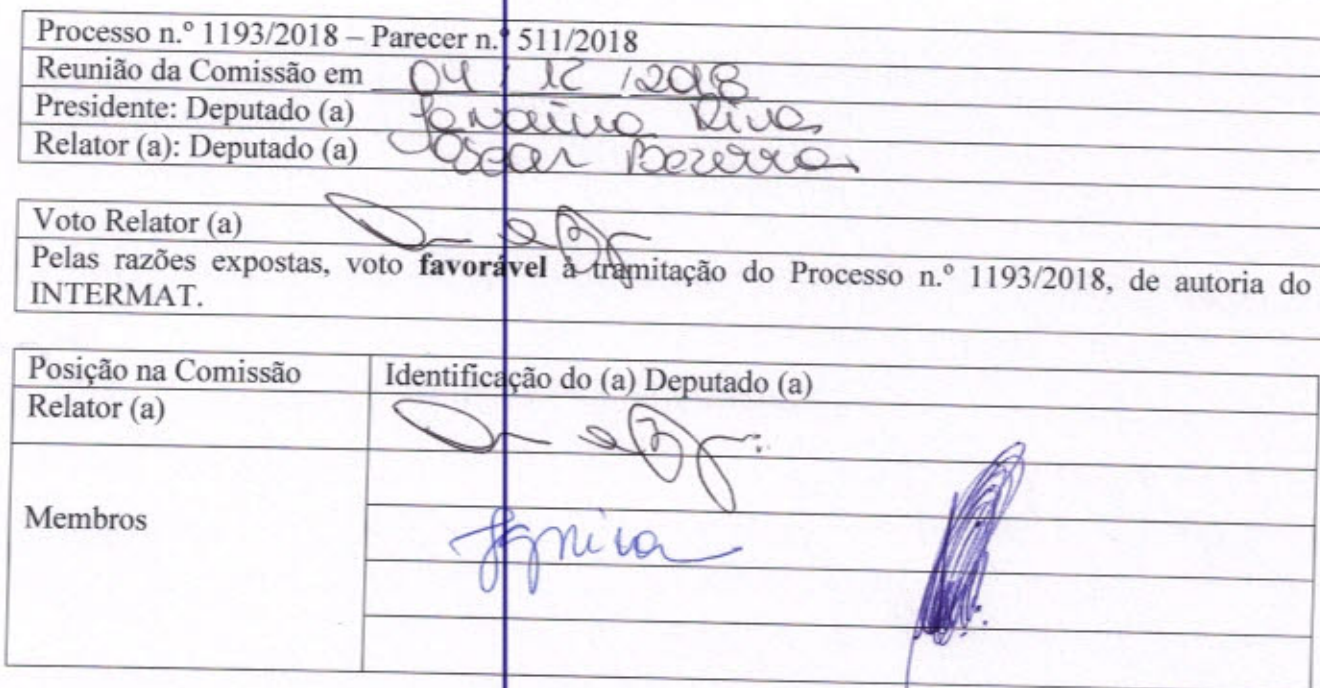 Processo n.º 1193/2018 – Parecer n.º 511/2018
Reunião da Comissão em 04 / 12 / 2018
Presidente: Deputado (a) Janaina Riva
Relator (a): Deputado (a) Oscar Bezerra
Voto Relator (a)
Pelas razões expostas, voto favorável à tramitação do Processo n.º 1193/2018, de autoria do
INTERMAT.
Posição na Comissão Identificação do (a) Deputado (a)
Relator (a)
Membros